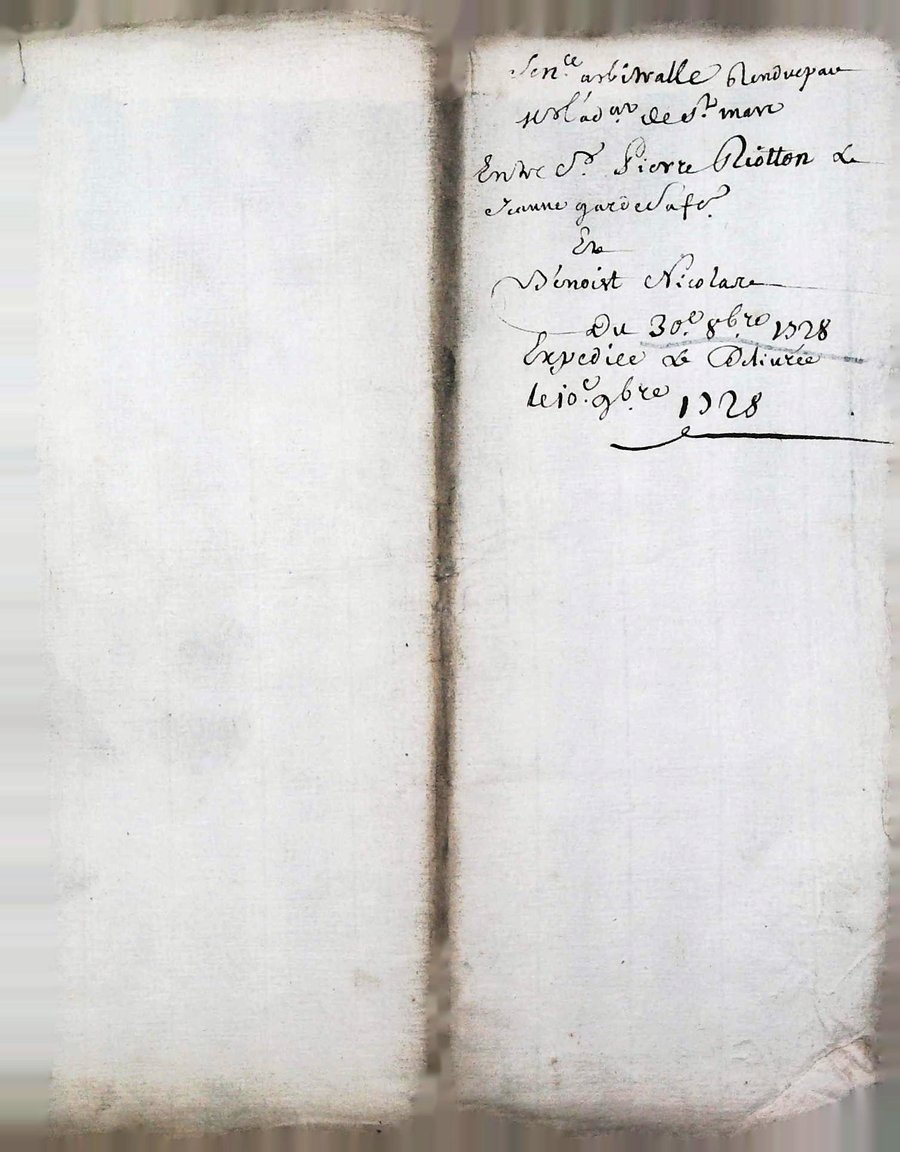 Sen.ce arbitralle Rendue par
de St. marc
Entre Sr. Pierre Riotton &
Jeanne garde Sa fe.
Et
Benoist Nicolas
Du 30.e 8bre 1728
Expediée & Deliurée
le 10.e 9bre 1728